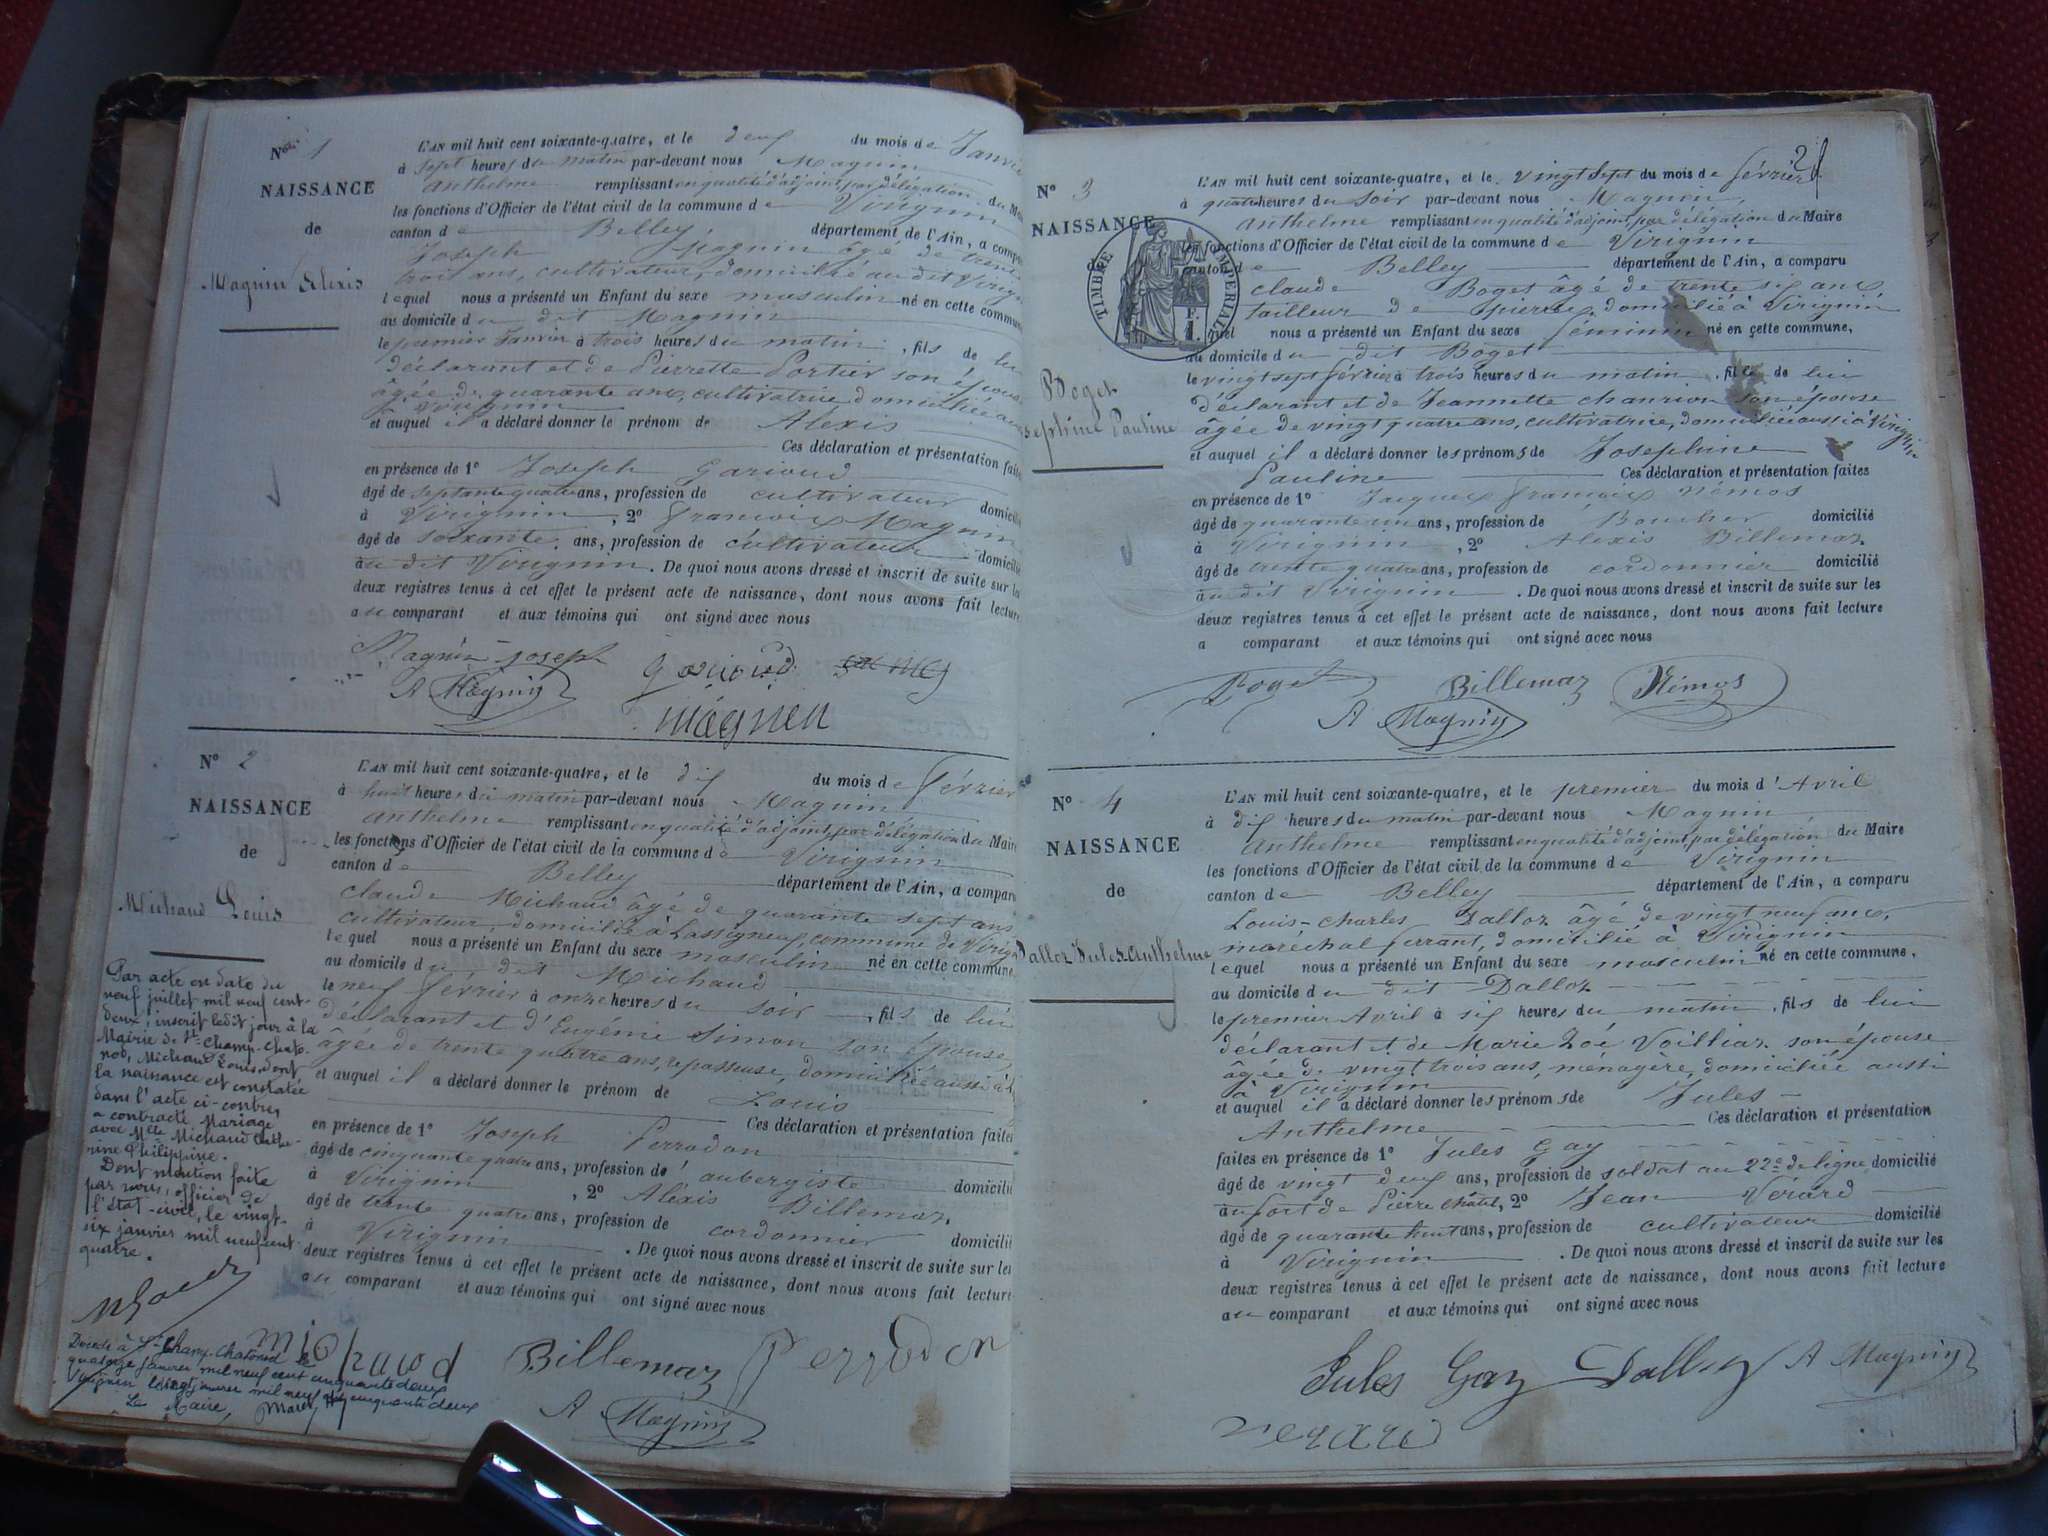 No 1
NAISSANCE
de
Magnin Alexis
L'AN mil huit cent soixante-quatre, et le deux du mois de Janvier
à sept heures du matin par-devant nous Magnin
Anthelme remplissant en qualité d'adjoint, par délégation du Maire
les fonctions d'Officier de l'état civil de la commune de Virignin
canton de Belley département de l'Ain, a comparu
Joseph Magnin âgé de trente
trois ans, cultivateur, domicilié au dit Virignin
lequel nous a présenté un Enfant du sexe masculin né en cette commune
au domicile du dit Magnin
le premier Janvier à trois heures du matin, fils de lui
déclarant et de Pierrette Portier son épouse
âgée de quarante ans, cultivatrice domiciliée
à Virignin
et auquel il a déclaré donner le prénom de Alexis
Ces déclaration et présentation faites
en présence de 1º Joseph Garioud
âgé de septante quatre ans, profession de cultivateur domicilié
à Virignin, 2º François Magnin
âgé de soixante ans, profession de cultivateur domicilié
au dit Virignin. De quoi nous avons dressé et inscrit de suite sur les
deux registres tenus à cet effet le présent acte de naissance, dont nous avons fait lecture
au comparant et aux témoins qui ont signé avec nous
Magnin Joseph garioud
A Magnin
magnien
Nº 2
NAISSANCE
de
Michaud Louis
L'AN mil huit cent soixante-quatre, et le dix du mois de février
à huit heures du matin par-devant nous Magnin
Anthelme remplissant en qualité d'adjoint, par délégation du Maire
les fonctions d'Officier de l'état civil de la commune de Virignin
canton de Belley département de l'Ain, a comparu
Claude Michaud âgé de quarante sept ans
cultivateur, domicilié à Lassigneux, commune de Virignin
lequel nous a présenté un Enfant du sexe masculin né en cette commune,
au domicile du dit Michaud
le neuf février à onze heures du soir, fils de lui
déclarant et d'Eugénie Simon son épouse,
âgée de trente quatre ans, repasseuse, domiciliée aussi à
et auquel il a déclaré donner le prénom de
Louis
Ces déclaration et présentation faites
en présence de 1º Joseph Perrodon
âgé de cinquante quatre ans, profession d'aubergiste domicilié
à Virignin, 2º Alexis Billemaz,
âgé de trente quatre ans, profession de cordonnier domicilié
à Virignin. De quoi nous avons dressé et inscrit de suite sur les
deux registres tenus à cet effet le présent acte de naissance, dont nous avons fait lecture
au comparant et aux témoins qui ont signé avec nous
michaud Billemaz perrodon
A Magnin
Par acte en date du
neuf juillet mil neuf cent
deux, inscrit ledit jour à la
Mairie de St-Champ-Chato-
nod, Michaud Louis, dont
la naissance est constatée
dans l'acte ci-contre,
a contracté Mariage
avec Mlle Michaud Cathe-
rine Philippine.
Dont mention faite
par nous, officier de
l'état-civil, le vingt-
six janvier mil neuf cent
quatre.
Décédé à St Champ-Chatonod le
quatorze janvier mil neuf cent cinquante deux
Virignin le vingt janvier mil neuf cent cinquante deux
Le Maire,
2
Nº 3
NAISSANCE
TIMBRE IMPERIAL
1 F.
Boget
Josephine Pauline
L'AN mil huit cent soixante-quatre, et le vingt sept du mois de février
à quatre heures du soir par-devant nous Magnin,
Anthelme remplissant en qualité d'adjoint, par délégation du Maire
les fonctions d'Officier de l'état civil de la commune de Virignin
canton de Belley département de l'Ain, a comparu
Claude Boget âgé de trente six ans,
tailleur de pierre, domicilié à Virignin
lequel nous a présenté un Enfant du sexe féminin né en cette commune,
au domicile du dit Boget
le vingt sept février à trois heures du matin, fille de lui
déclarant et de Jeannette Chanrion son épouse
âgée de vingt quatre ans, cultivatrice, domiciliée aussi à Virignin
et auquel il a déclaré donner les prénoms de Josephine
Pauline Ces déclaration et présentation faites
en présence de 1º Jacques François Némos
âgé de quarante un ans, profession de Boucher domicilié
à Virignin, 2º Alexis Billemaz
âgé de trente quatre ans, profession de cordonnier domicilié
au dit Virignin. De quoi nous avons dressé et inscrit de suite sur les
deux registres tenus à cet effet le présent acte de naissance, dont nous avons fait lecture
a comparant et aux témoins qui ont signé avec nous
Boget Billemaz Némos
A Magnin
Nº 4
NAISSANCE
de
Dalloz Jules Anthelme
L'AN mil huit cent soixante-quatre, et le premier du mois d'Avril
à dix heures du matin par-devant nous Magnin
Anthelme remplissant en qualité d'adjoint par délégation du Maire
les fonctions d'Officier de l'état civil de la commune de Virignin
canton de Belley département de l'Ain, a comparu
Louis-Charles Dalloz âgé de vingt neuf ans,
maréchal ferrant, domicilié à Virignin
lequel nous a présenté un Enfant du sexe masculin né en cette commune,
au domicile du dit Dalloz
le premier Avril à six heures du matin, fils de lui
déclarant et de Marie Zoé Voilliaz son épouse
âgée de vingt trois ans, ménagère, domiciliée aussi
à Virignin
et auquel il a déclaré donner les prénoms de Jules
Anthelme Ces déclaration et présentation
faites en présence de 1º Jules Gay
âgé de vingt deux ans, profession de soldat au 22e de ligne domicilié
au fort de Pierre Châtel, 2º Jean Vérard
âgé de quarante huit ans, profession de cultivateur domicilié
à Virignin. De quoi nous avons dressé et inscrit de suite sur les
deux registres tenus à cet effet le présent acte de naissance, dont nous avons fait lecture
au comparant et aux témoins qui ont signé avec nous
Jules Gay Dalloz A Magnin
verard